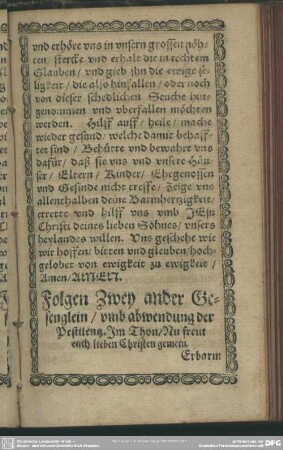 vnd erhöre vns in vnsern grossen nöh-
ten / stercke vnd erhalt die in rechtem
Glauben / vnd gieb jhn die ewige se-
ligkeit / die also hinfallen / oder noch
von dieser schedlichen Seuche hin-
genommen vnd vberfallen möchten
werden. Hilff auff / heile / mache
wieder gesund / welche damit behaff-
tet sind / Behütte vnd bewahre vns
dafür / daß sie vns vnd vnsere Häu-
ser / Eltern / Kinder / Ehegenossen
vnd Gesinde nicht treffe / Zeige vns
allenthalben deine Barmhertzigkeit /
errette vnd hilff vns vmb JEsu
Christi deines lieben Söhnes / vnsers
heylandes willen. Vns geschehe wie
wir hoffen / bitten vnd gleuben / hoch-
gelobet von ewigkeit zu ewigkeit /
Amen / AMEN.
Folgen Zwey ander Ge-
senglein / vmb abwendung der
Pestilentz. Im Thon / Nu frewt
euch lieben Christen gemein.
Erbarm